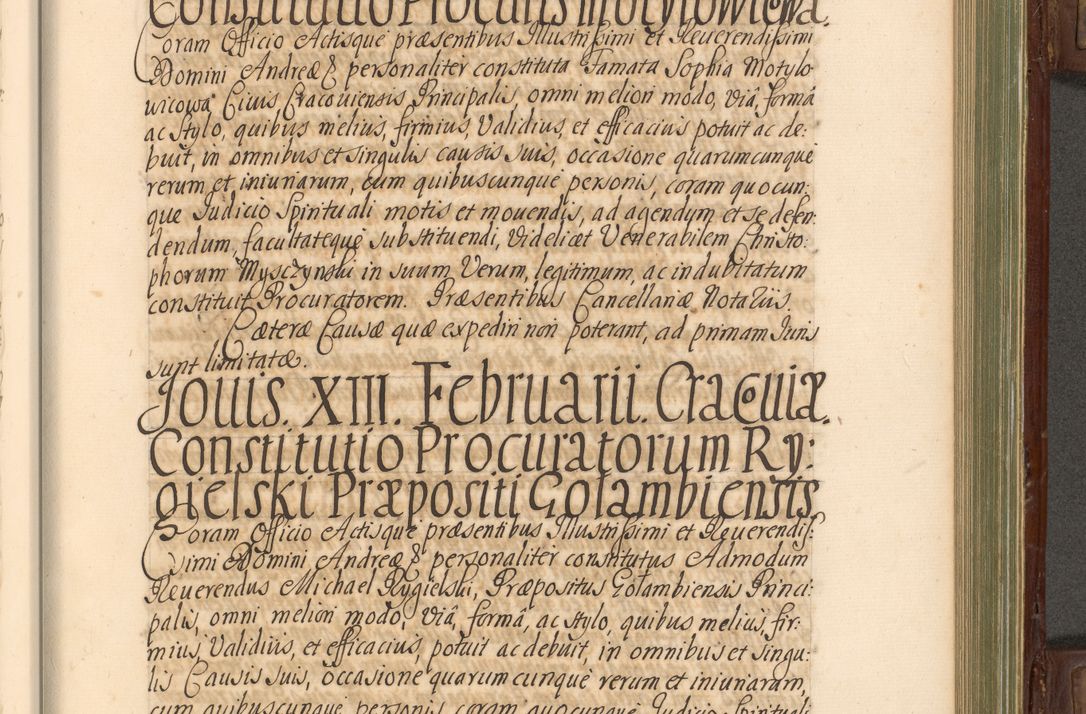 Constitutio Procuris Motylowicowa.
Coram Officio Actisque præsentibus Illustrissimi et Reuerendissimi
Domini Andreæ & personaliter constituta Famata Sophia Motylo
uicowa Ciuis Cracouiensis Principalis, omni meliori modo, viâ, formâ
ac stylo, quibus melius, firmius, Validius, et efficacius potuit ac de:
buit, in omnibus et singulis causis suis, occasione quarumcunque
rerum et iniuriarum, cum quibuscunque personis, coram quocun:
que Judicio Spirituali motis et mouendis, ad agendum et se defen:
dendum, facultateque substituendi, Videlicet Venerabilem Christo:
phorum Mysczynski in suum Verum, legitimum, ac indubitatum
constituit Procuratorem. Præsentibus Cancellariæ Notariis.
Cæteræ Causæ quæ expediri non poterant, ad primam Juris
sunt limitatæ.
Jouis. XIII. Februarii. Cracouiæ.
Constitutio Procuratorum Ry:
gielski Præpositi Gołambiensis.
Coram Officio Actisque præsentibus Illustrissimi et Reuerendis:
simi Domini Andreæ & personaliter constitutus Admodum
Reuerendus Michael Rygielski, Præpositus Gołambiensis Princi:
palis, omni meliori modo, viâ, formâ, ac stylo, quibus melius, fir:
mius, Validius, et efficacius, potuit ac debuit, in omnibus et singu:
lis Causis suis, occasione quarumcunque rerum et iniuriarum,
cum quibuscunque personis, coram quocunque Judicio Spirituali